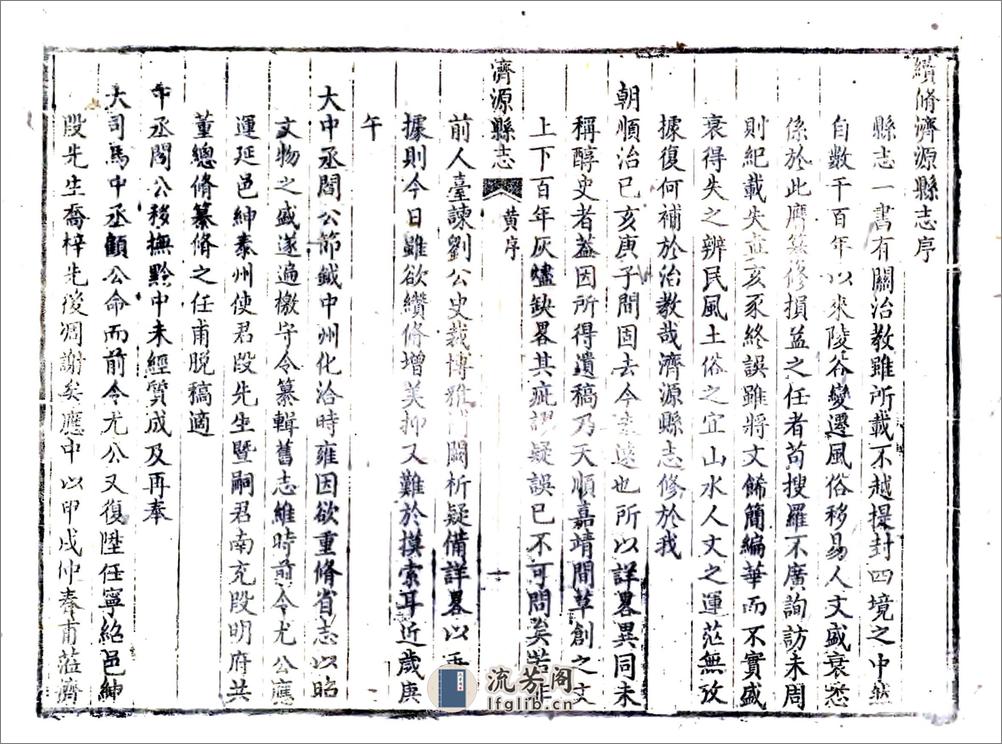 續脩濟源縣志序
縣志一書有關治教雖所載不越提封四境之中然
自數千百年以來陵谷變遷風俗移易人文盛衰悉
係於此膺纂修損益之任者苟搜羅不廣詢訪未周
則紀載失宜亥豕終誤雖將文餙簡編華而不實盛
衰得失之辨民風土俗之宜山水人文之運茫無攷
據復何補於治教哉濟源縣志修於我
朝順治己亥庚子間固去今未遠也所以詳畧異同未
稱醇史者葢因所得遺稿乃天順嘉靖間草創之文
上下百年灰爐缺畧其疵謬疑誤已不可問矣若非
濟源縣志
黄序
一
前人臺諫劉公史裁博雅 闕析疑備詳畧以
據則今日雖欲纘脩增美抑又難於摸索耳近歲庚
午
大中丞閻公節鉞中州化洽時雍因欲重脩省志以昭
文物之盛遂遍檄守令纂輯舊志維時前令尤公應
運延邑紳泰州使君段先生暨嗣君南充段明府共
董總脩纂脩之任甫脫稿適
中丞閻公移撫黔中未經質成及再奉
大司馬中丞顧公命而前令尤公又復陞任寧紹邑紳
段先生喬梓先後凋謝矣應中以甲戌仲春甫蒞濟
流芳阁
lfglib.cn